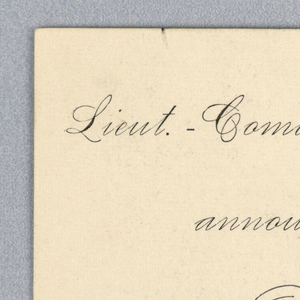 Lieut. - Com
annou